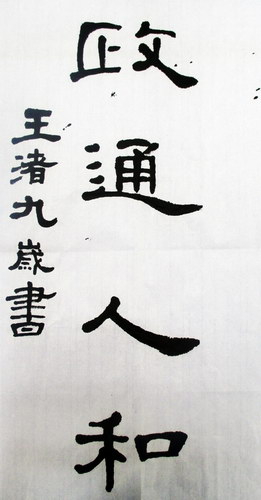 政通人和
王渚九歲書